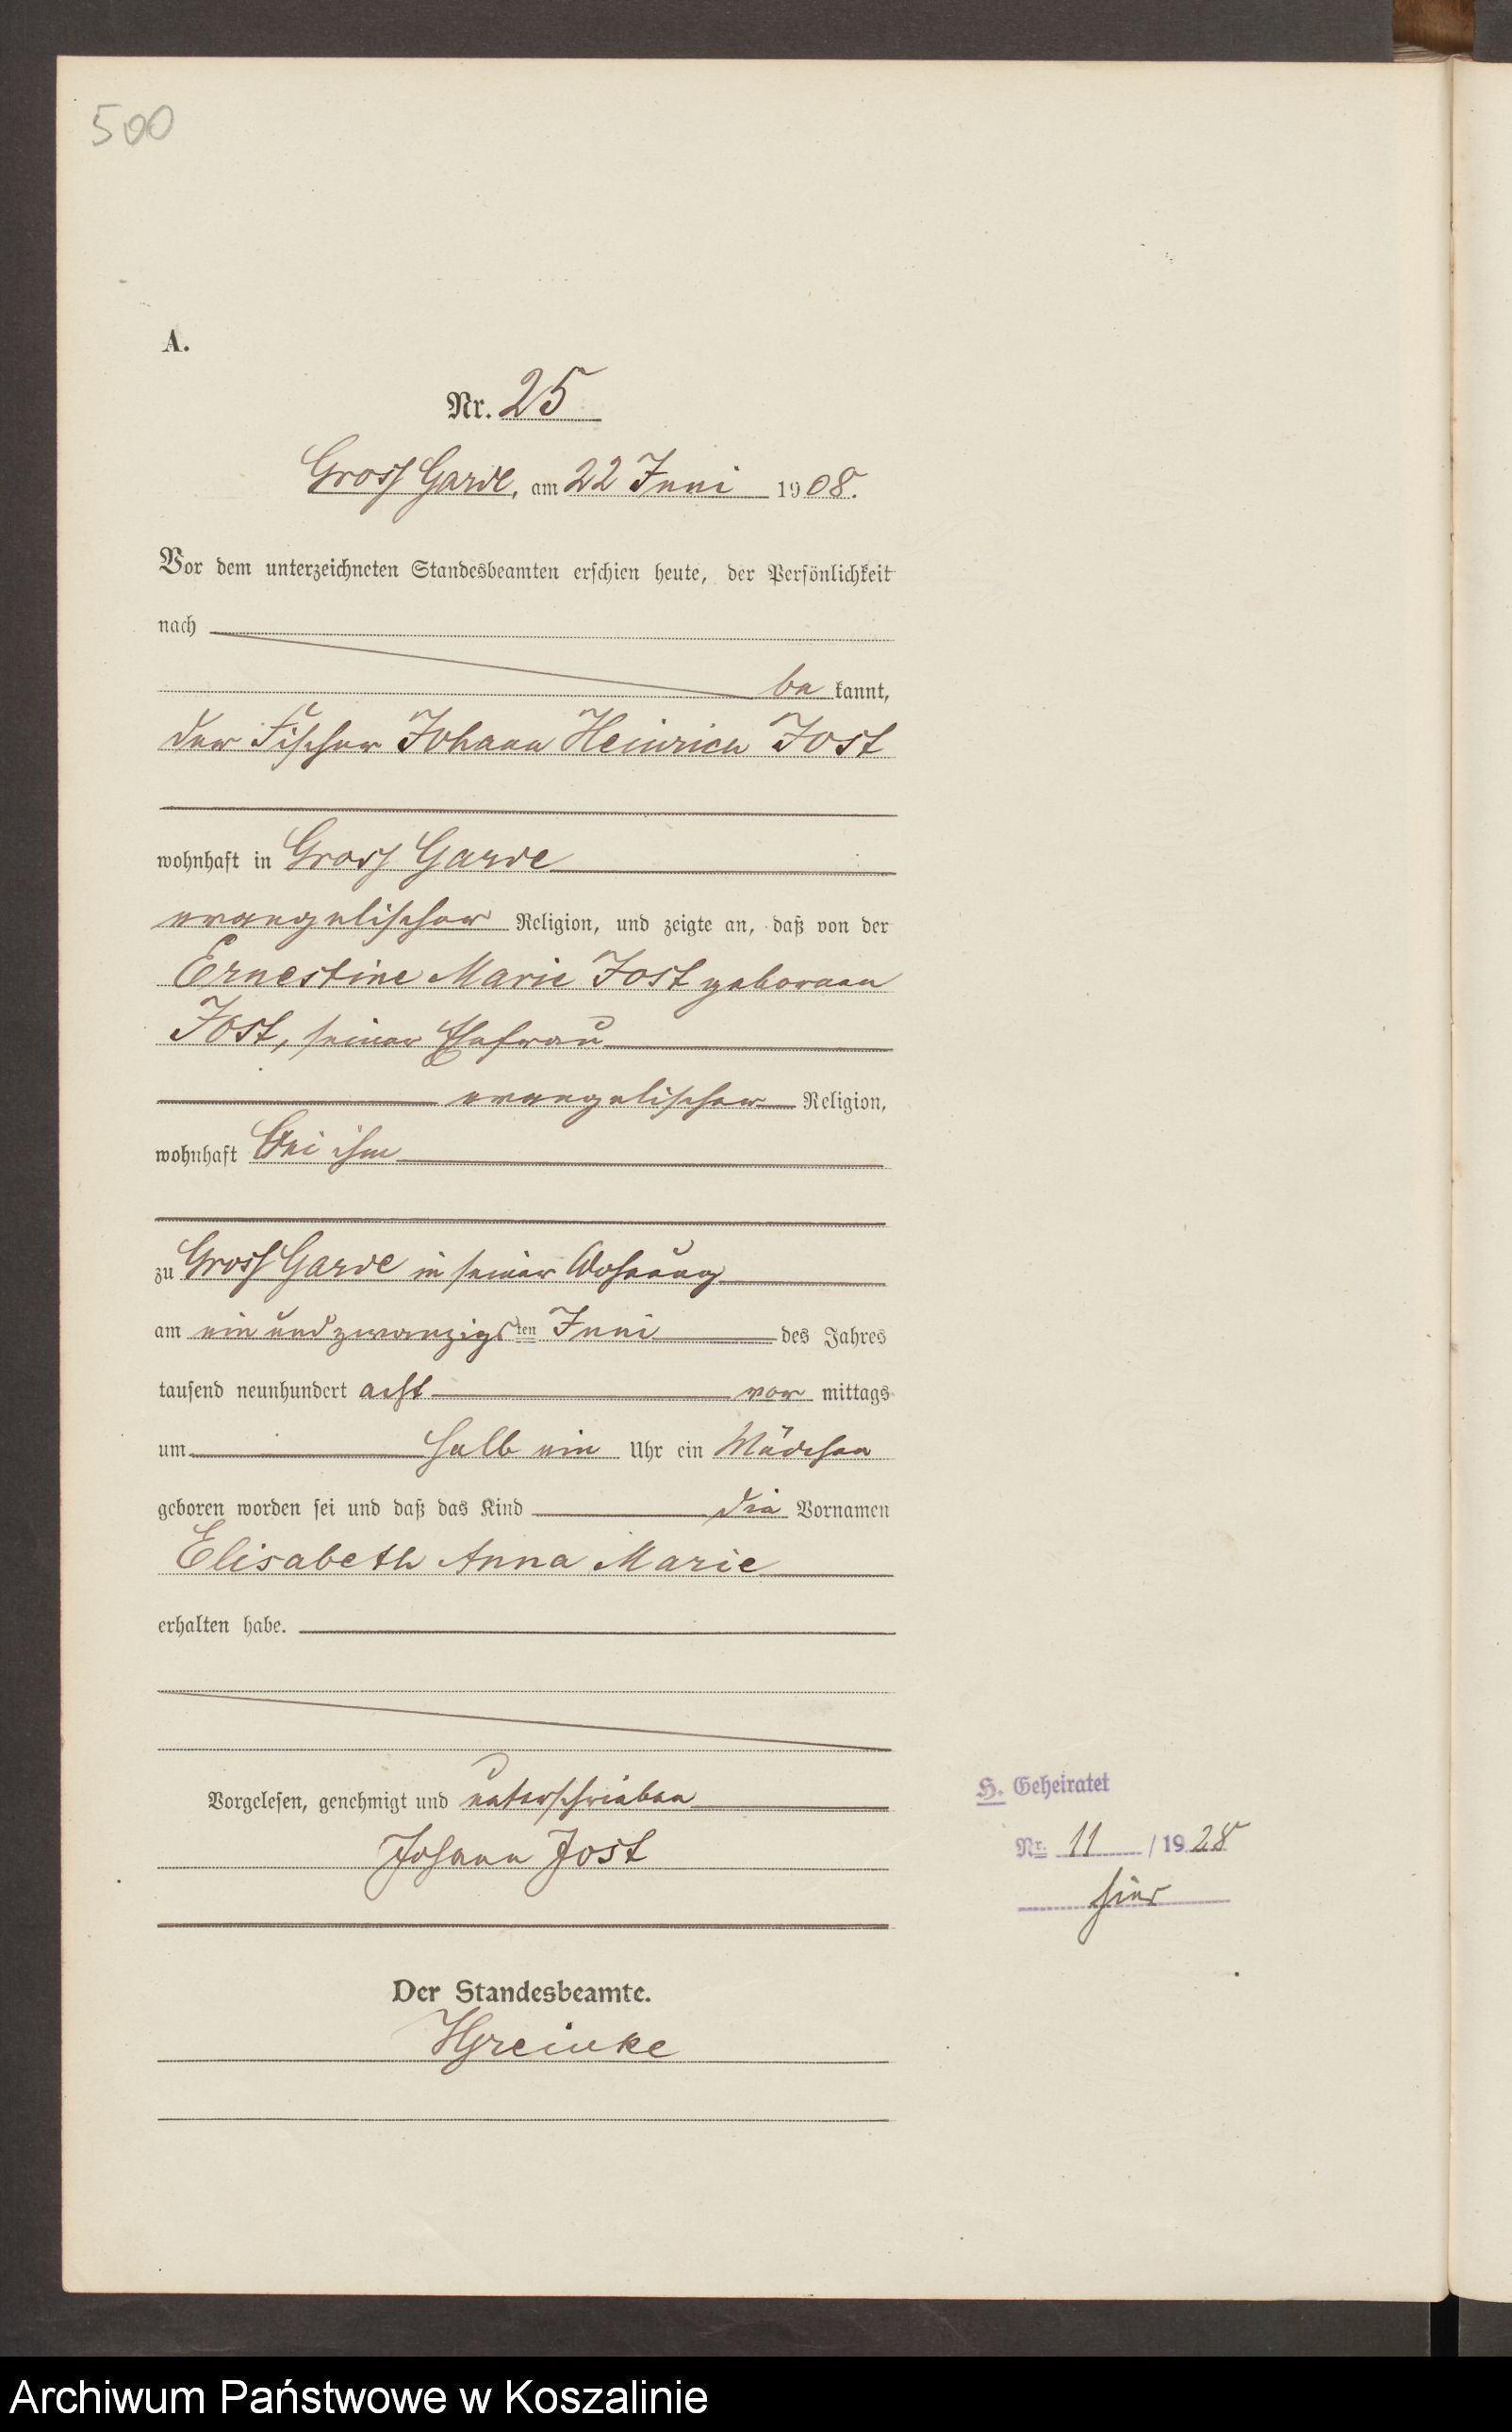 500
A.
Nr. 25
Gross Garde, am 22 Juni 1908.
Vor dem unterzeichneten Standesbeamten erschien heute, der Persönlichkeit
nach
be kannt,
der Fischer Johann Heinrich Jost
wohnhaft in Gross Garde
evangelischer Religion, und zeigte an, daß von der
Ernestine Marie Jost geborenen
Jost, seiner Ehefrau
evangelischer Religion,
wohnhaft bei ihm
zu Gross Garde in seiner Wohnung
am ein und zwanzigs ten Juni des Jahres
tausend neunhundert acht vor mittags
um halb ein Uhr ein Mädchen
geboren worden sei und daß das Kind die Vornamen
Elisabeth Anna Marie
erhalten habe.
Vorgelesen, genehmigt und unterschrieben
Johann Jost
Der Standesbeamte.
H. Geheiratet
Nr. 11 / 1928
hier
Archiwum Państwowe w Koszalinie